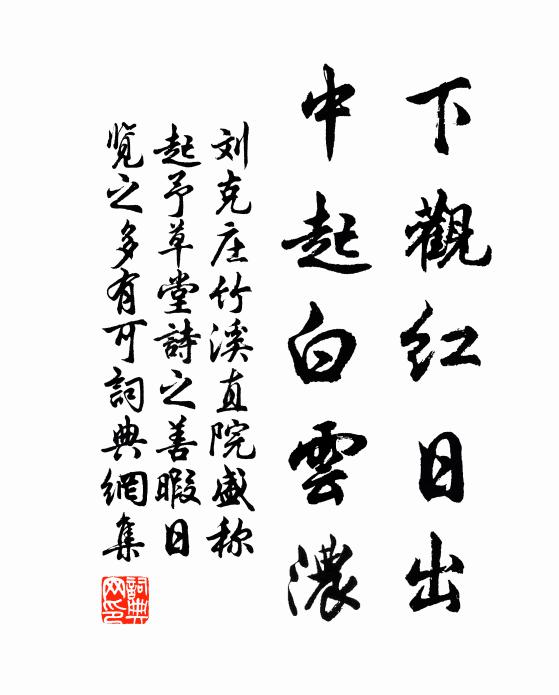 下觀红日出
中起白雲濃
刘克庄竹溪直院盛称
起予草堂詩之善暇日
览之多有可詞典網集
詞典
网印